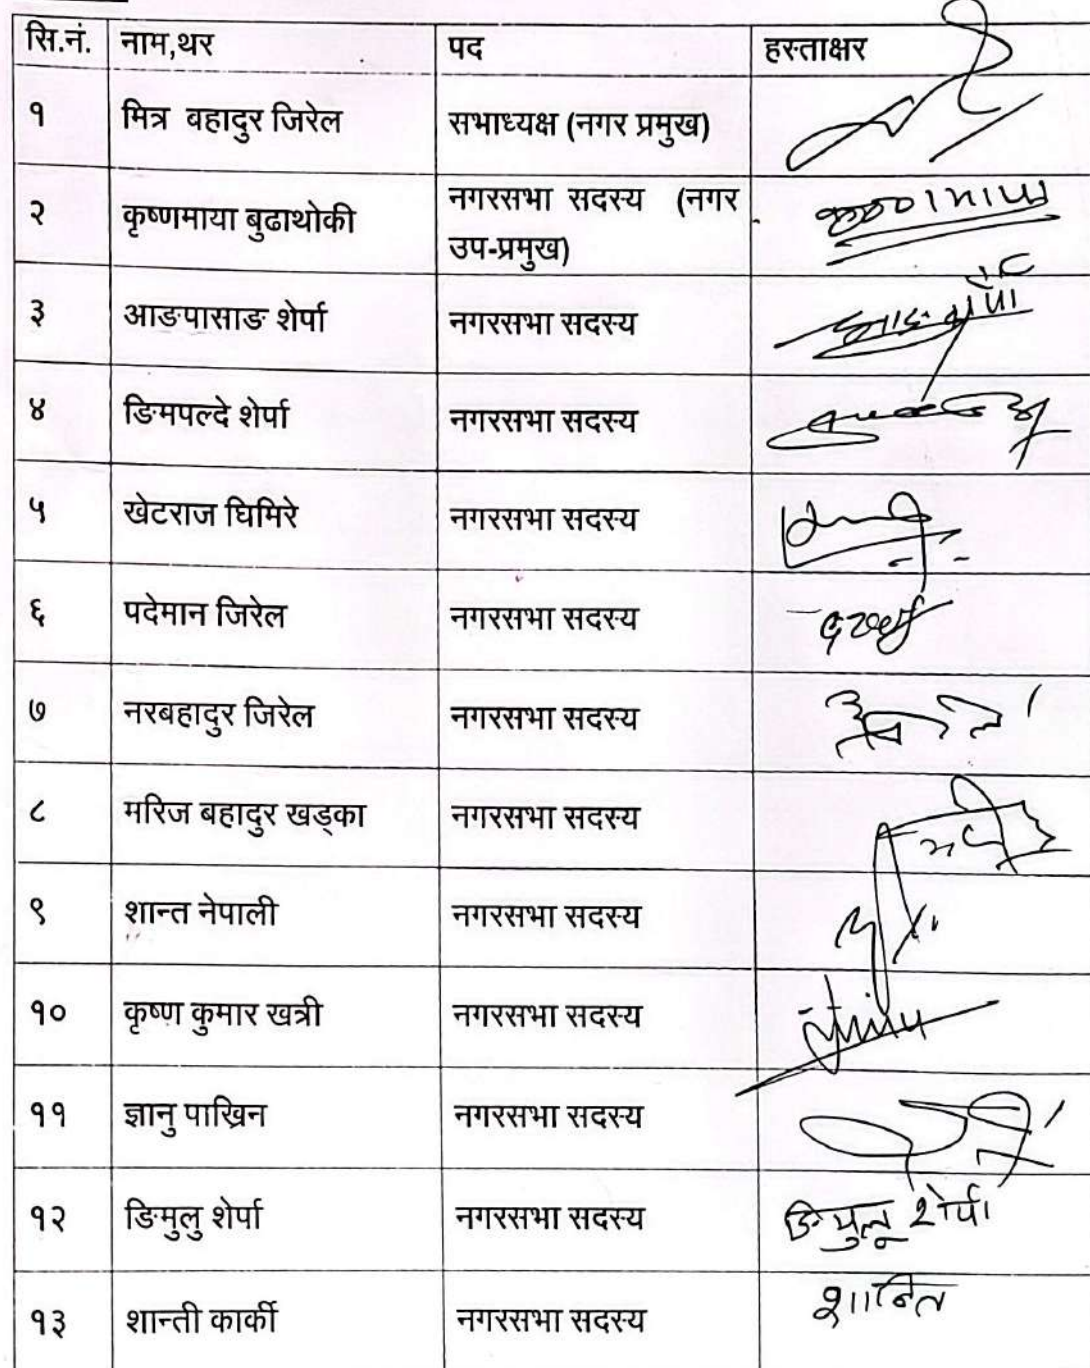 सि.नं. नाम,थर पद हस्ताक्षर
१ मित्र बहादुर जिरेल सभाध्यक्ष (नगर प्रमुख)
२ कृष्णमाया बुढाथोकी नगरसभा सदस्य (नगर
उप-प्रमुख) कृष्णमाया
३ आङपासाङ शेर्पा नगरसभा सदस्य
४ ङिमपल्दे शेर्पा नगरसभा सदस्य
५ खेटराज घिमिरे नगरसभा सदस्य
६ पदेमान जिरेल नगरसभा सदस्य
७ नरबहादुर जिरेल नगरसभा सदस्य
८ मरिज बहादुर खड्का नगरसभा सदस्य
९ शान्त नेपाली नगरसभा सदस्य
१० कृष्ण कुमार खत्री नगरसभा सदस्य
११ ज्ञानु पाख्रिन नगरसभा सदस्य
१२ ङिमुलु शेर्पा नगरसभा सदस्य ङिमुलू शेर्पा
१३ शान्ती कार्की नगरसभा सदस्य शान्ति